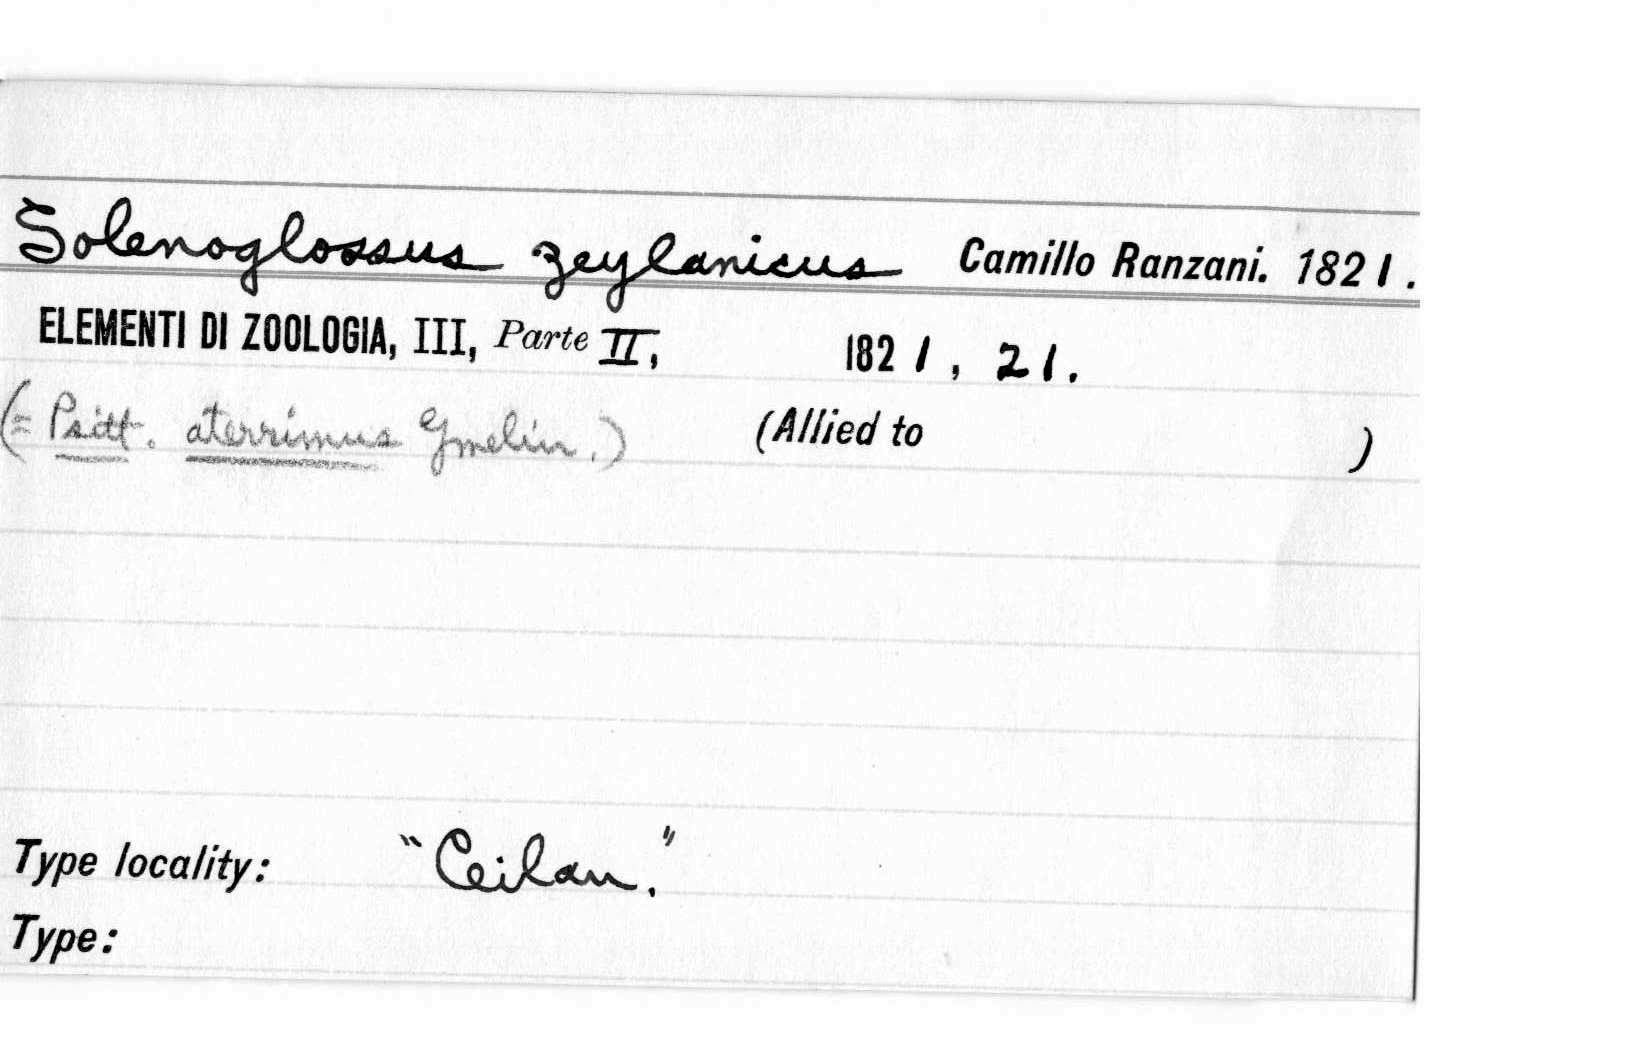 Solenoglossus zeylanicus Camillo Ranzani. 1821.
ELEMENTI DI ZOOLOGIA, III, Parte II, 1821, 21.
(= Psitt. aterrimus Gmelin.) (Allied to )
Type locality: "Ceilan."
Type: